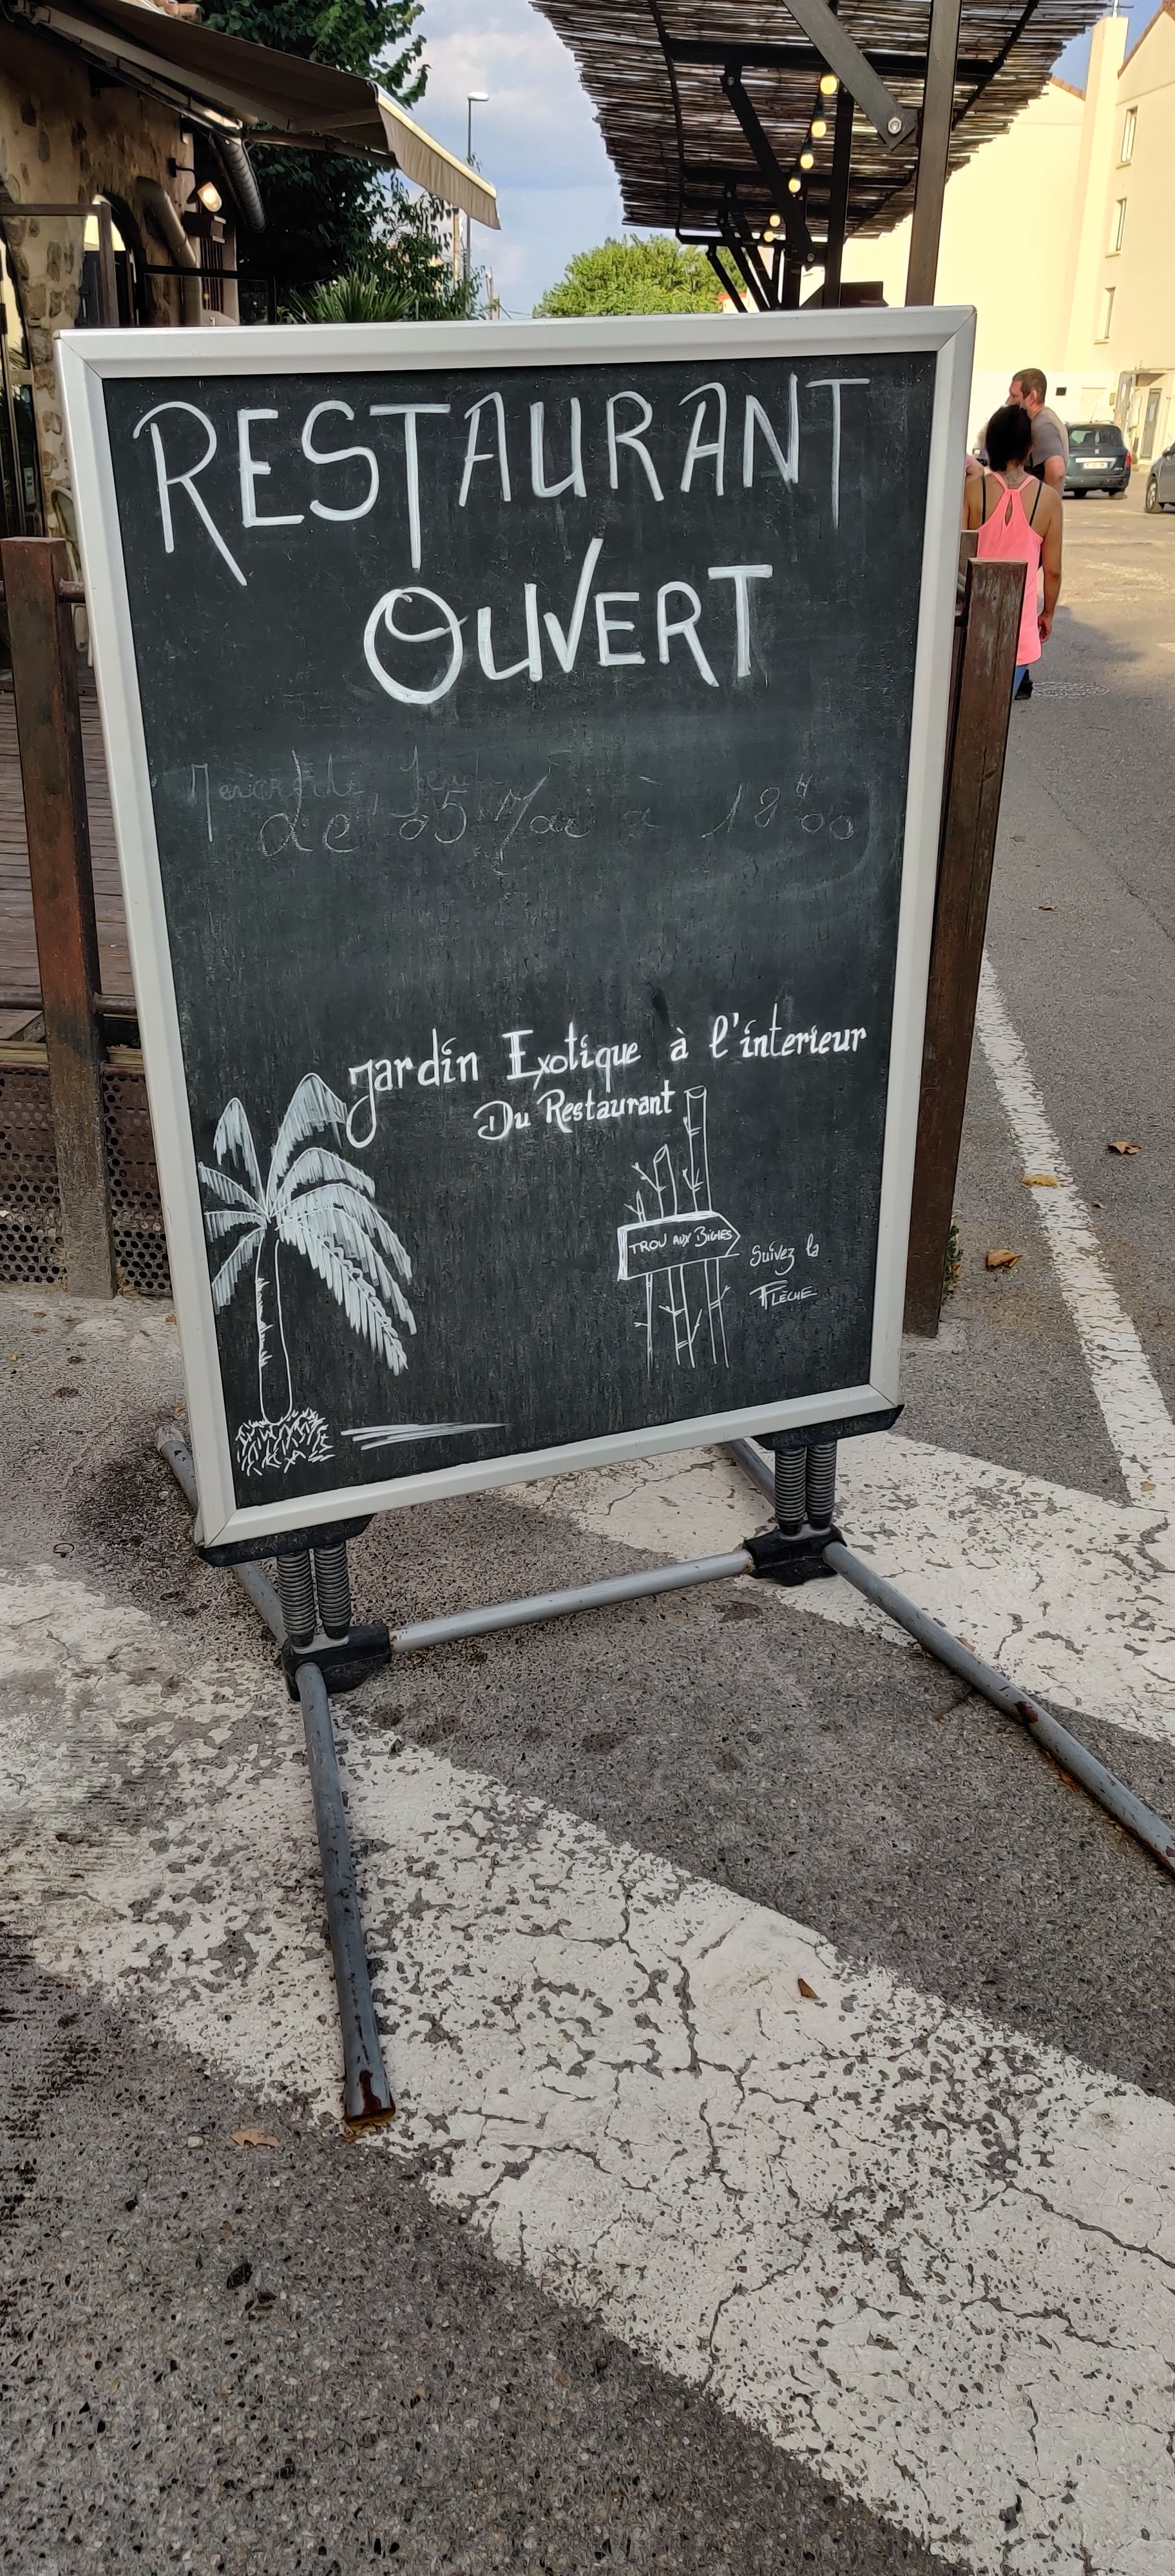 RESTAURANT
OUVERT
Mercredi, Jeudi
de à 18H00
Jardin Exotique à l'interieur
Du Restaurant
TROU AUX BICHES
Suivez la
FLÈCHE